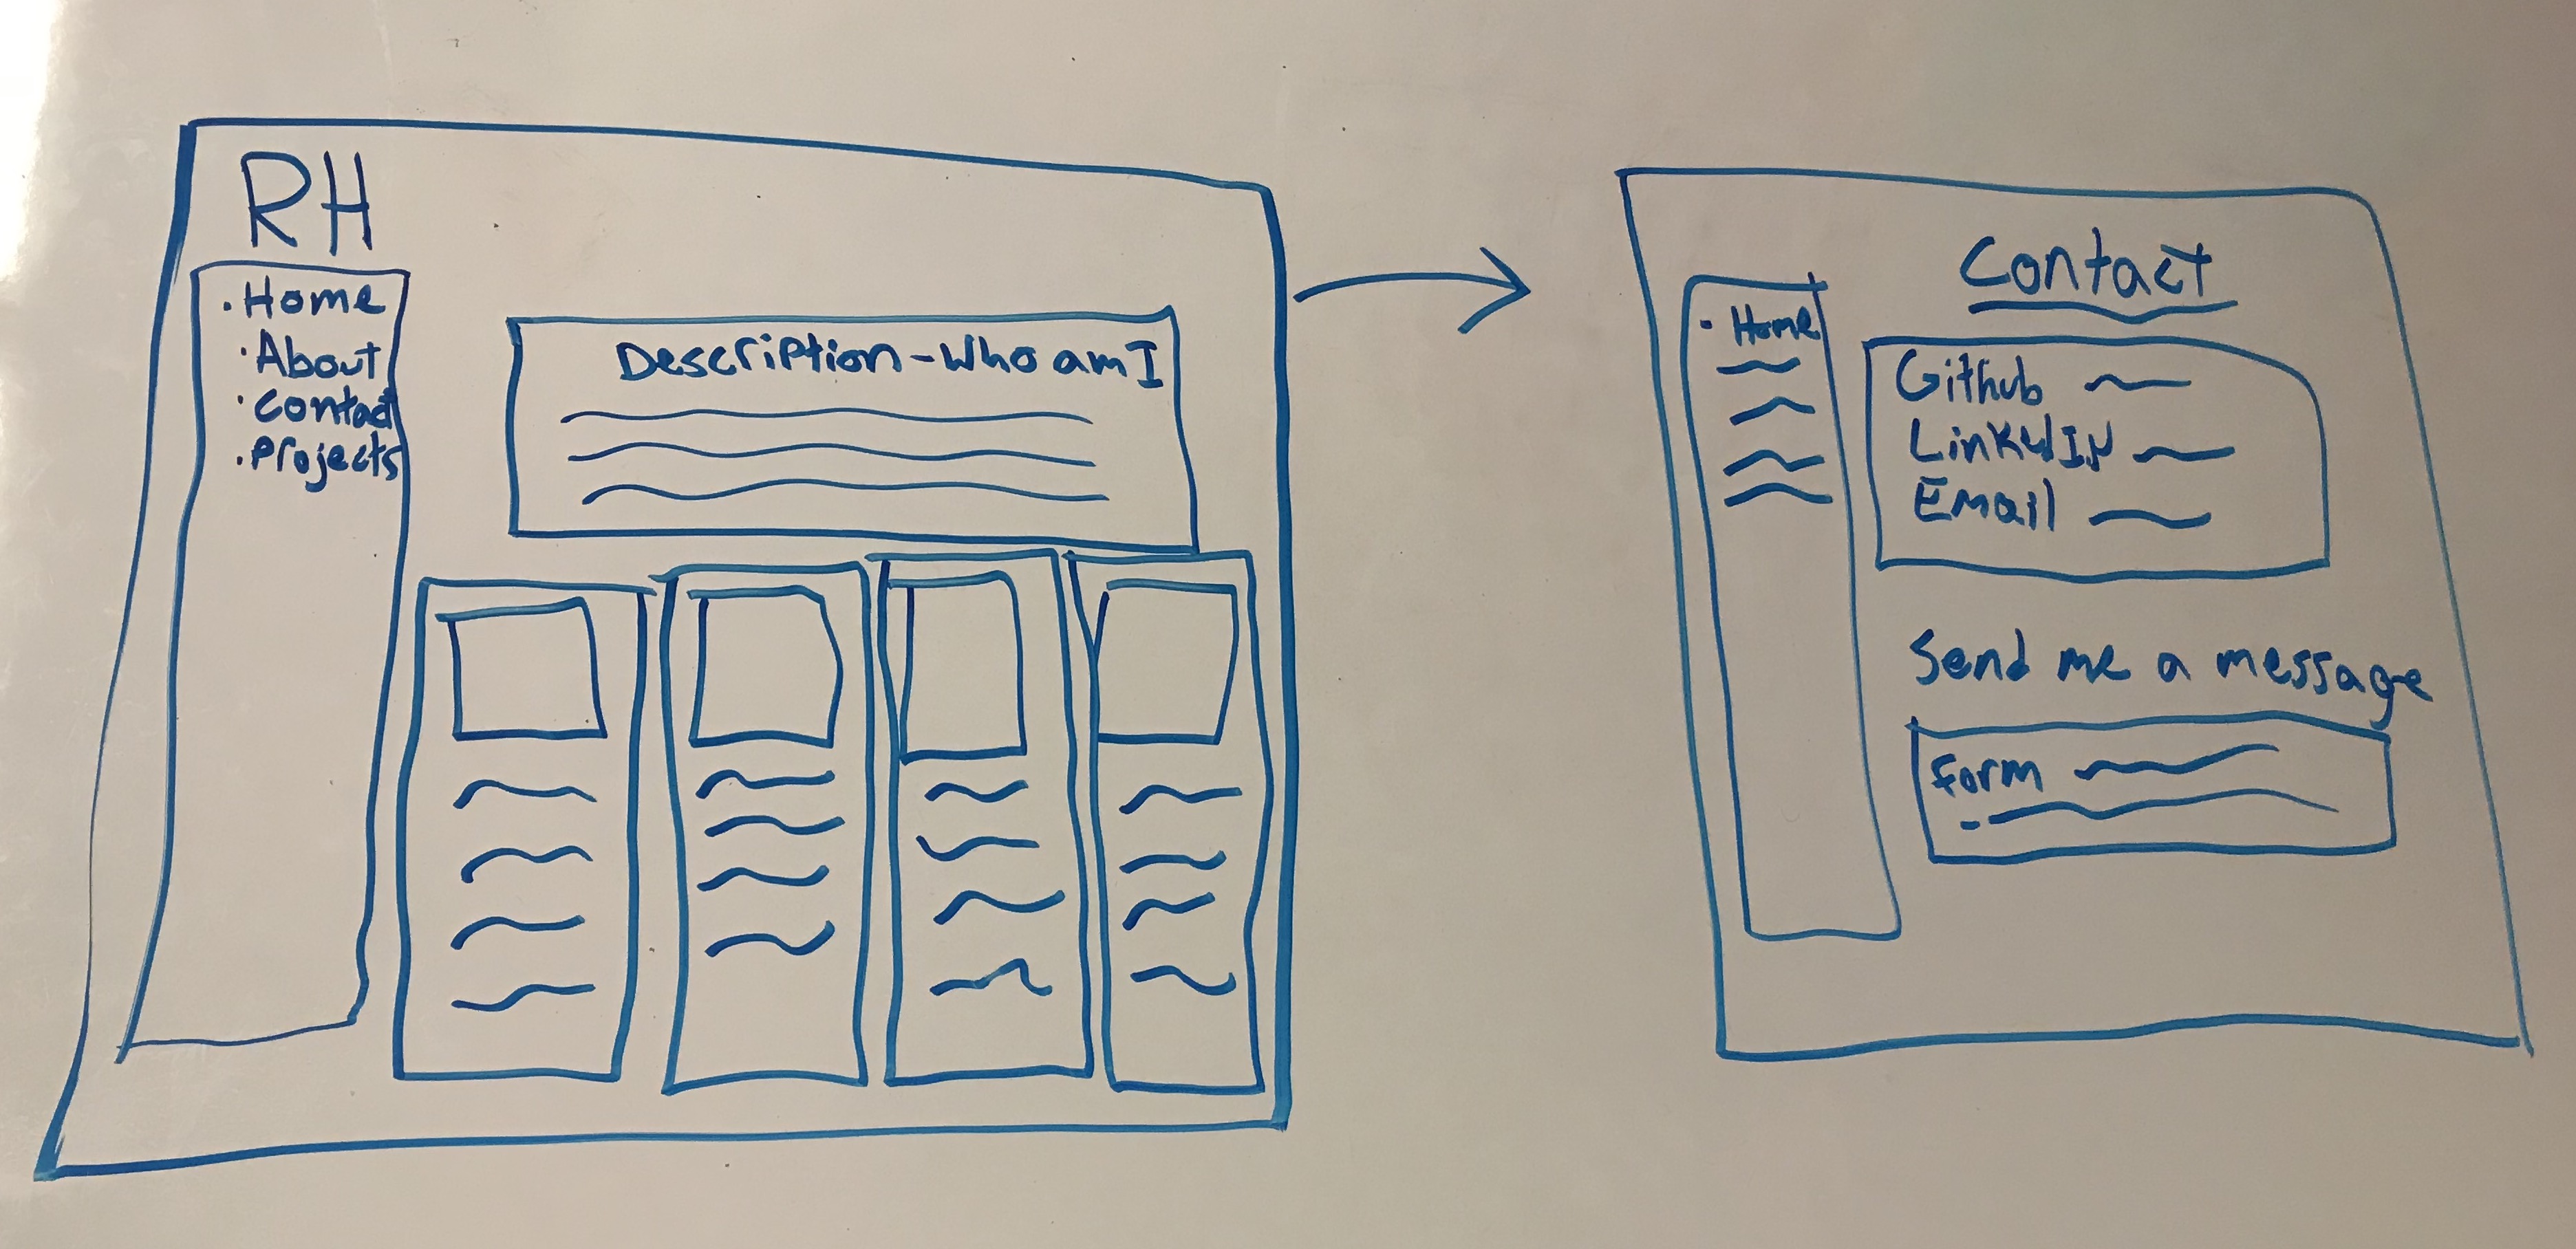 RH
· Home
· About
· Contact
· Projects
Description - Who am I
Contact
· Home
Github
LinkdIN
Email
Send me a message
form